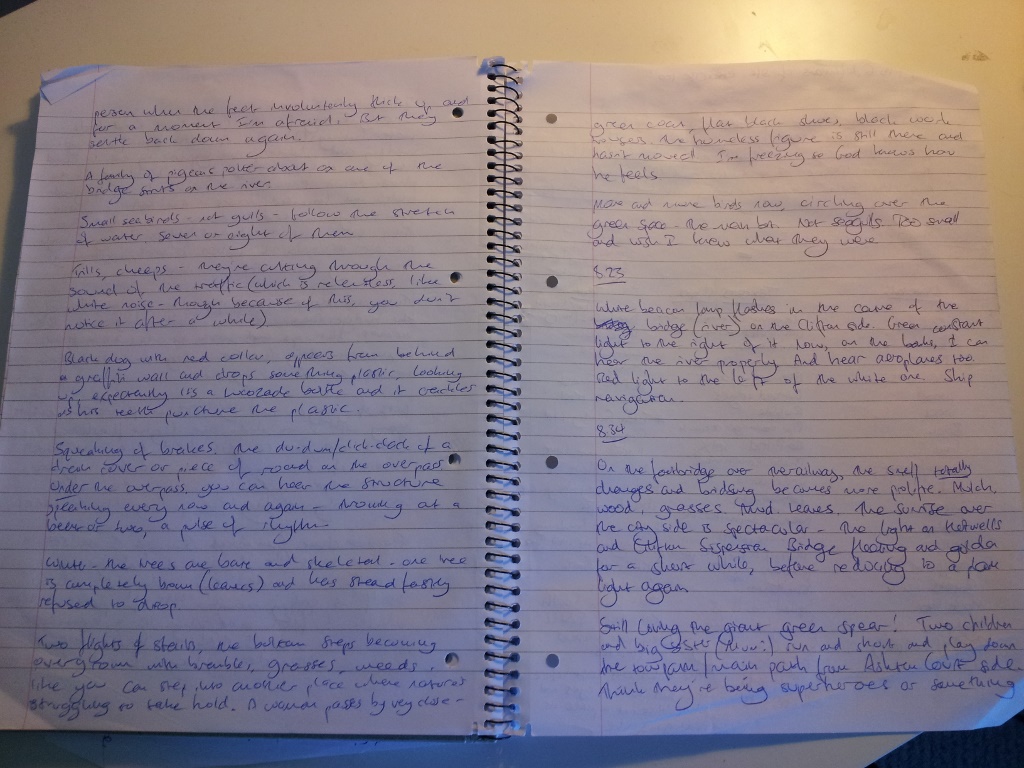 person when the feet involuntarily flick up and
for a moment I'm afraid. But they
settle back down again.
A family of pigeons potter about on one of the
bridge struts on the river
Small seabirds - not gulls - follow the stretch
of water, seven or eight of them
Trills, cheeps - they're cutting through the
sound of the traffic (which is relentless, like
white noise - though because of this, you don't
notice it after a while)
Black dog with red collar, appears from behind
a graffiti wall and drops something plastic, looking
up expectantly its a lucozade bottle and it crackles
as his teeth puncture the plastic.
Squeaking of brakes. The du-dum/click-clack of a
drain cover or piece of road on the overpass
Under the overpass, you can hear the structure
speaking every now and again - knocking out a
beat or two, a pulse of rhythm -
White - the trees are bare and skeletal. one tree
is completely brown (leaves) and has steadfastly
refused to drop
Two flights of stairs, the bottom steps becoming
overgrown with bramble, grasses, weeds.
like you can step into another place where nature's
struggling to take hold. A woman passes by very close -
green coat, flat black shoes, black work
trousers. The homeless figure is still there and
hasn't moved I'm freezing so God knows how
he feels
More and more birds now, circling over the
green space - the main bit. Not seagulls Too small
and wish I knew what they were
8.23
White beacon lamp flashes in the of the
bridge (river) on the Clifton side. Green constant
light to the right of it Now, on the banks, I can
hear the river properly And hear aeroplanes too.
Red light to the left of the white one. Ship
navigation.
8.34
On the footbridge over the railway, the smell totally
changes and birdsong becomes more prolific. Mulch,
wood, grasses mud leaves. The sunrise over
the city side is spectacular - the light on Hotwells
and Clifton Suspension Bridge fleeting and golden
for a short while, before reducing to a pale
light again
Still loving the giant green spear! Two children
and big sister (Mum?) run and shout and play down
the towpath/main path from Ashton Court side.
Think they're being superheroes or something